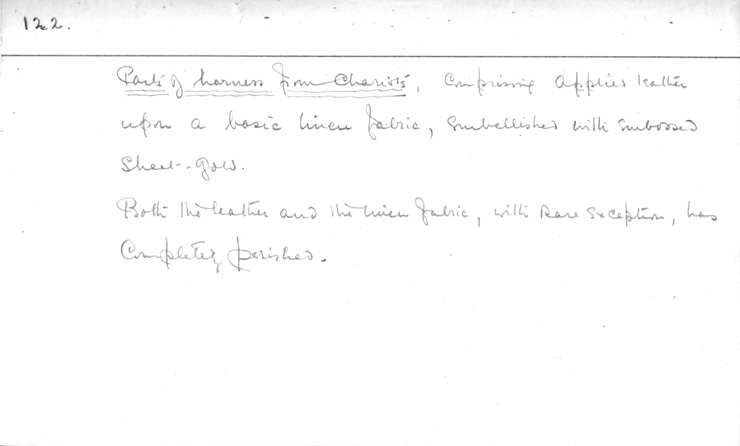 122.
Parts of harness from Chariots, Comprising applied leather
upon a basic linen fabric, embellished with embossed
Sheet-gold.
Both the leather and the linen fabric, with rare exception, has
Completely perished.